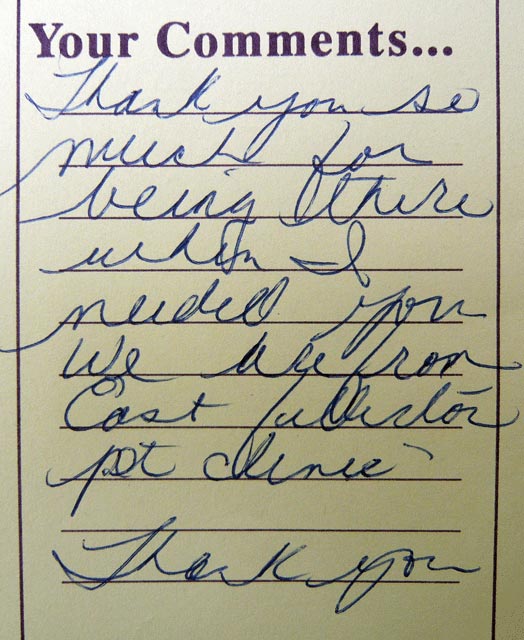 Your Comments...
Thank you so
much for
being there
when I
needed you
We are from
East Fullerton
pt clinic
Thank you